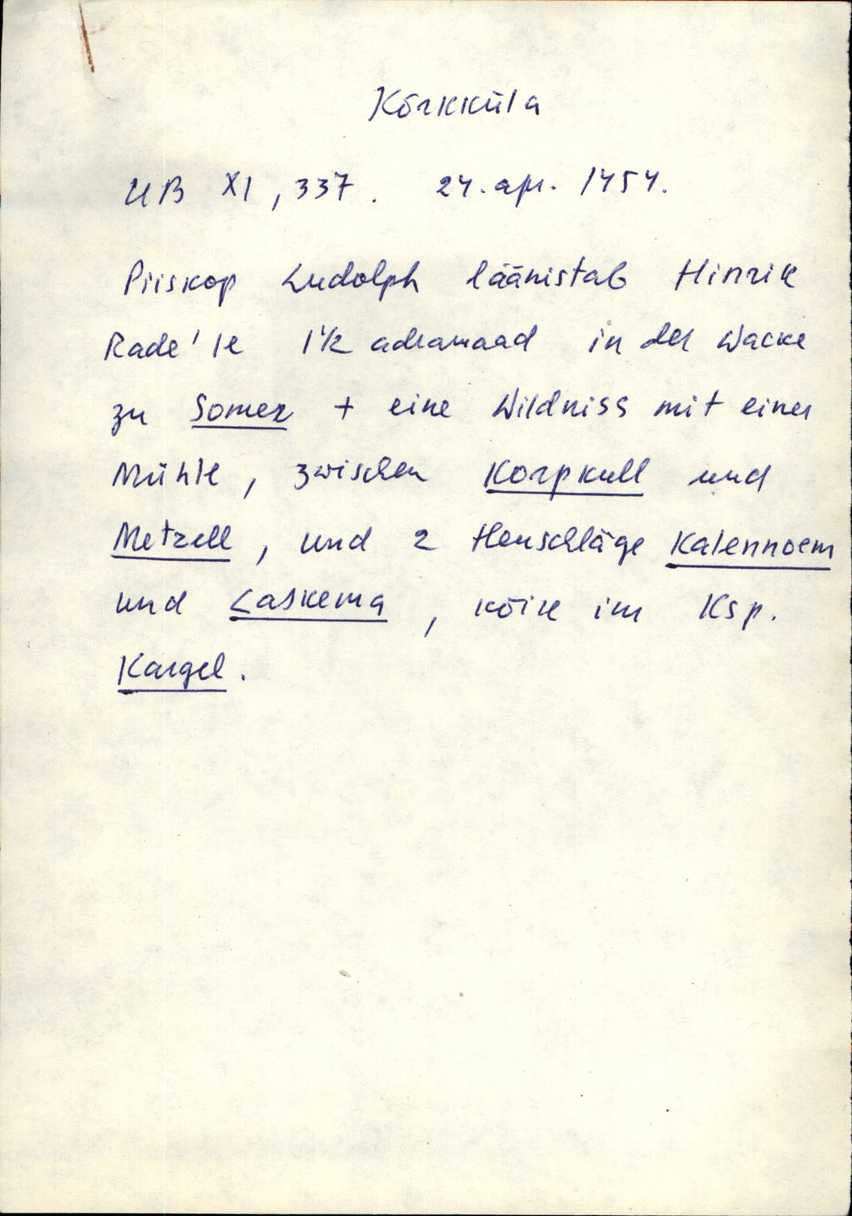 Kõrkküla
UB XI, 337. 24. apr. 1454.
Piiskop Ludolph läänistab Hinrik
Rade'le 1 1/2 adramaad in der Wacke
zu Somer + eine Wildniss mit einer
Mühle, zwischen Korpkull und
Metzell, und 2 Heuschläge Kalennoem
und Laskema, kõik im Ksp.
Kargel.